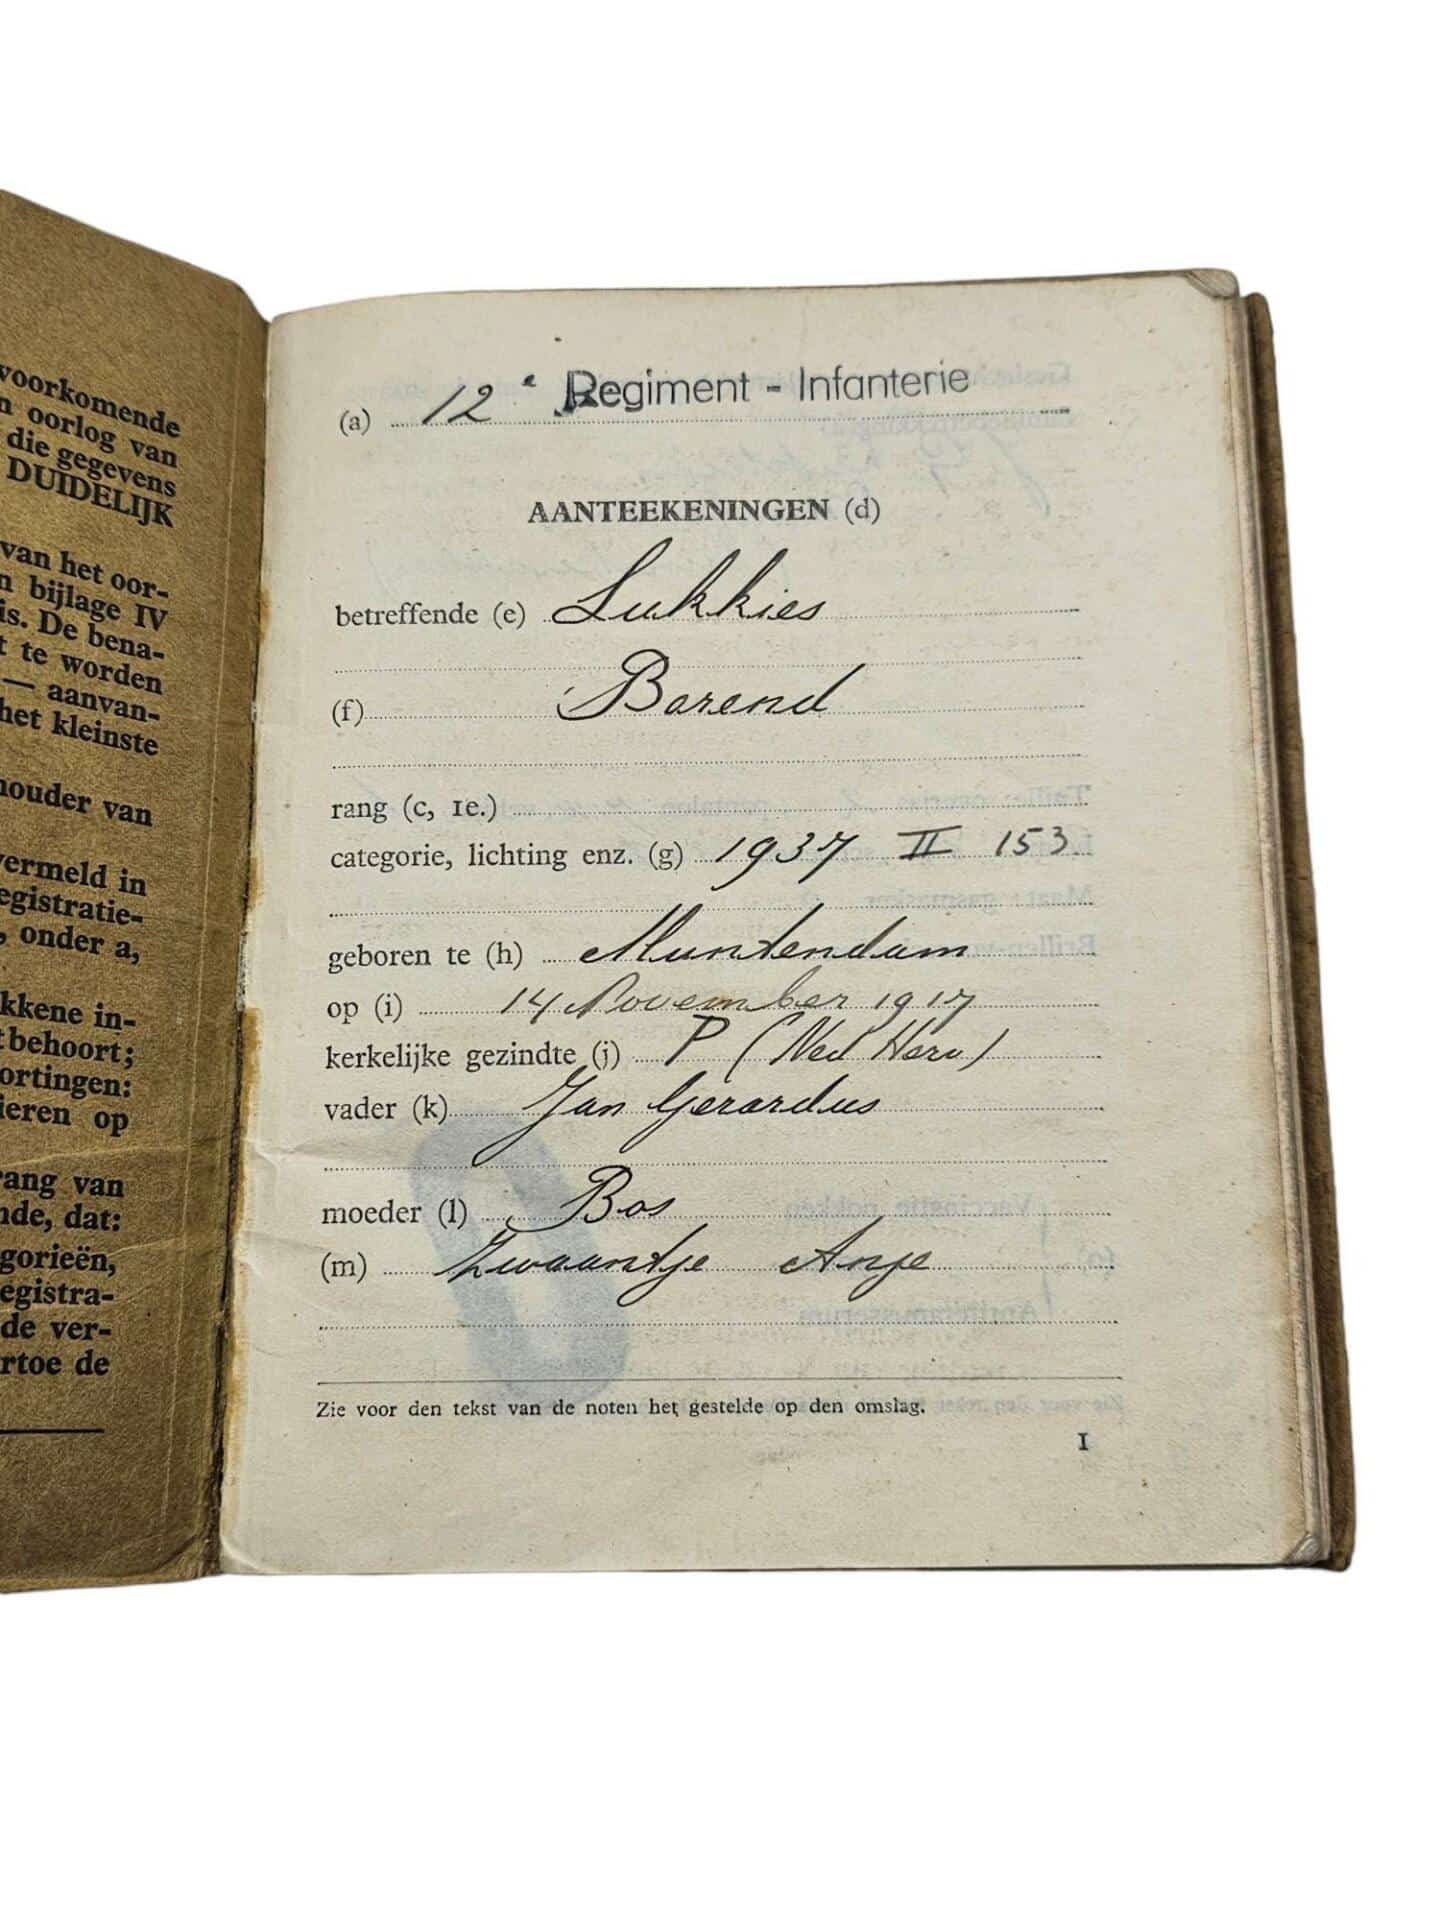 voorkomende
n oorlog van
die gegevens
DUIDELIJK
van het oor-
n bijlage IV
is. De bena-
t te worden
— aanvan-
het kleinste
houder van
vermeld in
egistratie-
, onder a,
kkene in-
tbehoort;
ortingen:
ieren op
rang van
nde, dat:
gorieën,
egistra-
de ver-
rtoe de
(a) 12e Regiment - Infanterie
AANTEEKENINGEN (d)
betreffende (e) Lukkies
(f) Barend
rang (c, 1e.)
categorie, lichting enz. (g) 1937 II 153
geboren te (h) Muntendam
op (i) 14 November 1917
kerkelijke gezindte (j) P (Ned Herv)
vader (k) Jan Gerardus
moeder (l) Bos
(m) Zwaantje Anje
Zie voor den tekst van de noten het gestelde op den omslag.
1